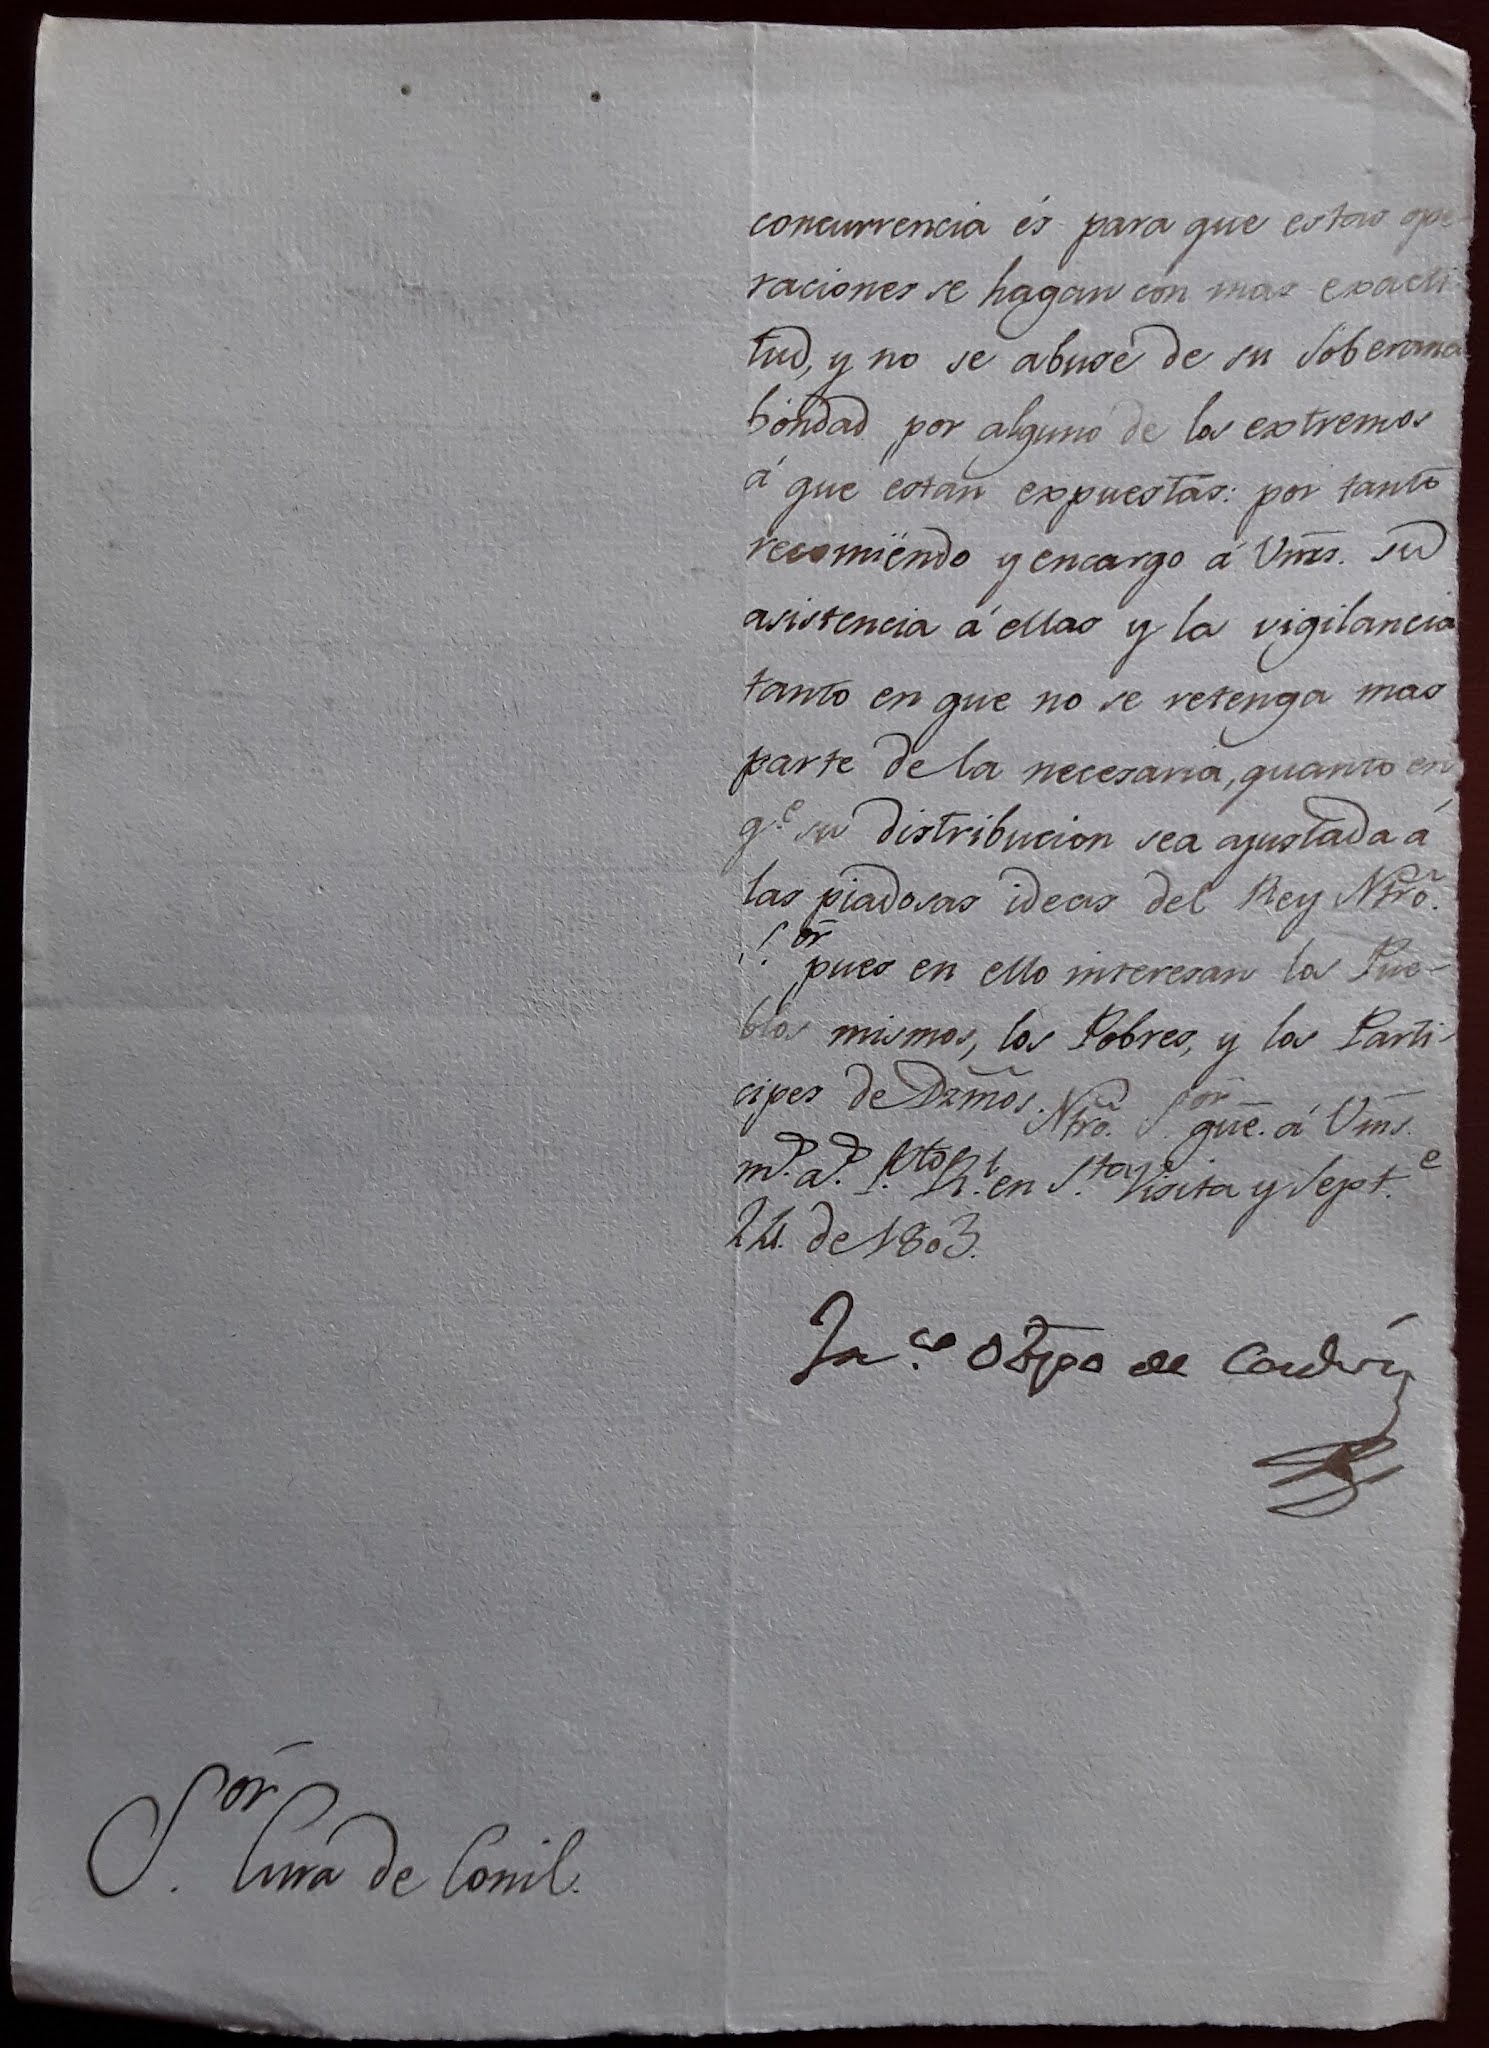 concurrencia és para que estas ope-
raciones se hagan con mas exacti-
tud, y no se abuse de su soberana
bondad por alguno de los extremos
á que estan expuestas: por tanto
recomiendo y encargo á Vms. su
asistencia á ellas y la vigilancia
tanto en que no se retenga mas
parte de la necesaria, quanto en
q.e su distribucion sea ajustada á
las piadosas ideas del Rey Ntrō.
S.or pues en ello interesan los Pue-
blos mismos, los Pobres, y los Parti-
cipes de Dzmos. Ntrō. S.or gue. á Vms.
m.s a.s P.to R.l en S.ta Visita y Sept.e
24. de 1803.
Fran.co Obpo de Cadiz
S.or Cura de Conil.